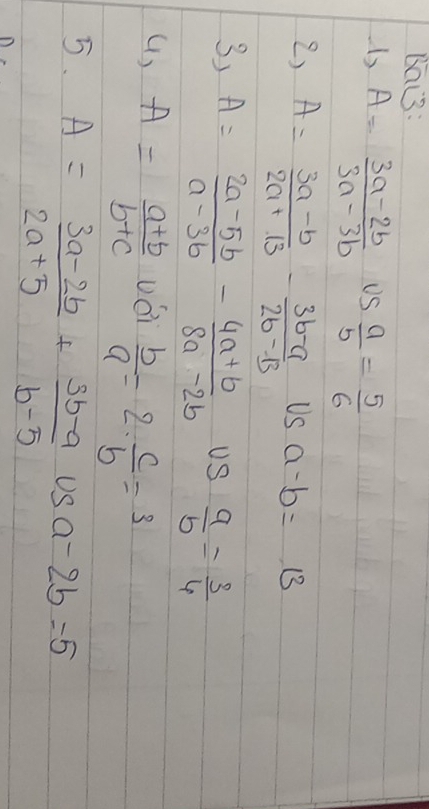 Bài 3:
1, A = \frac{3a-2b}{3a-3b} vs \frac{a}{b} = \frac{5}{6}
2, A = \frac{3a-b}{2a+13} - \frac{3b-a}{2b-13} vs a-b = 13
3, A = \frac{2a-5b}{a-3b} - \frac{4a+b}{8a-2b} vs \frac{a}{b} = \frac{3}{4}
4, A = \frac{a+b}{b+c} với \frac{b}{a} = 2 . \frac{c}{b} = 3
5. A = \frac{3a-2b}{2a+5} + \frac{3b-a}{b-5} vs a-2b = 5